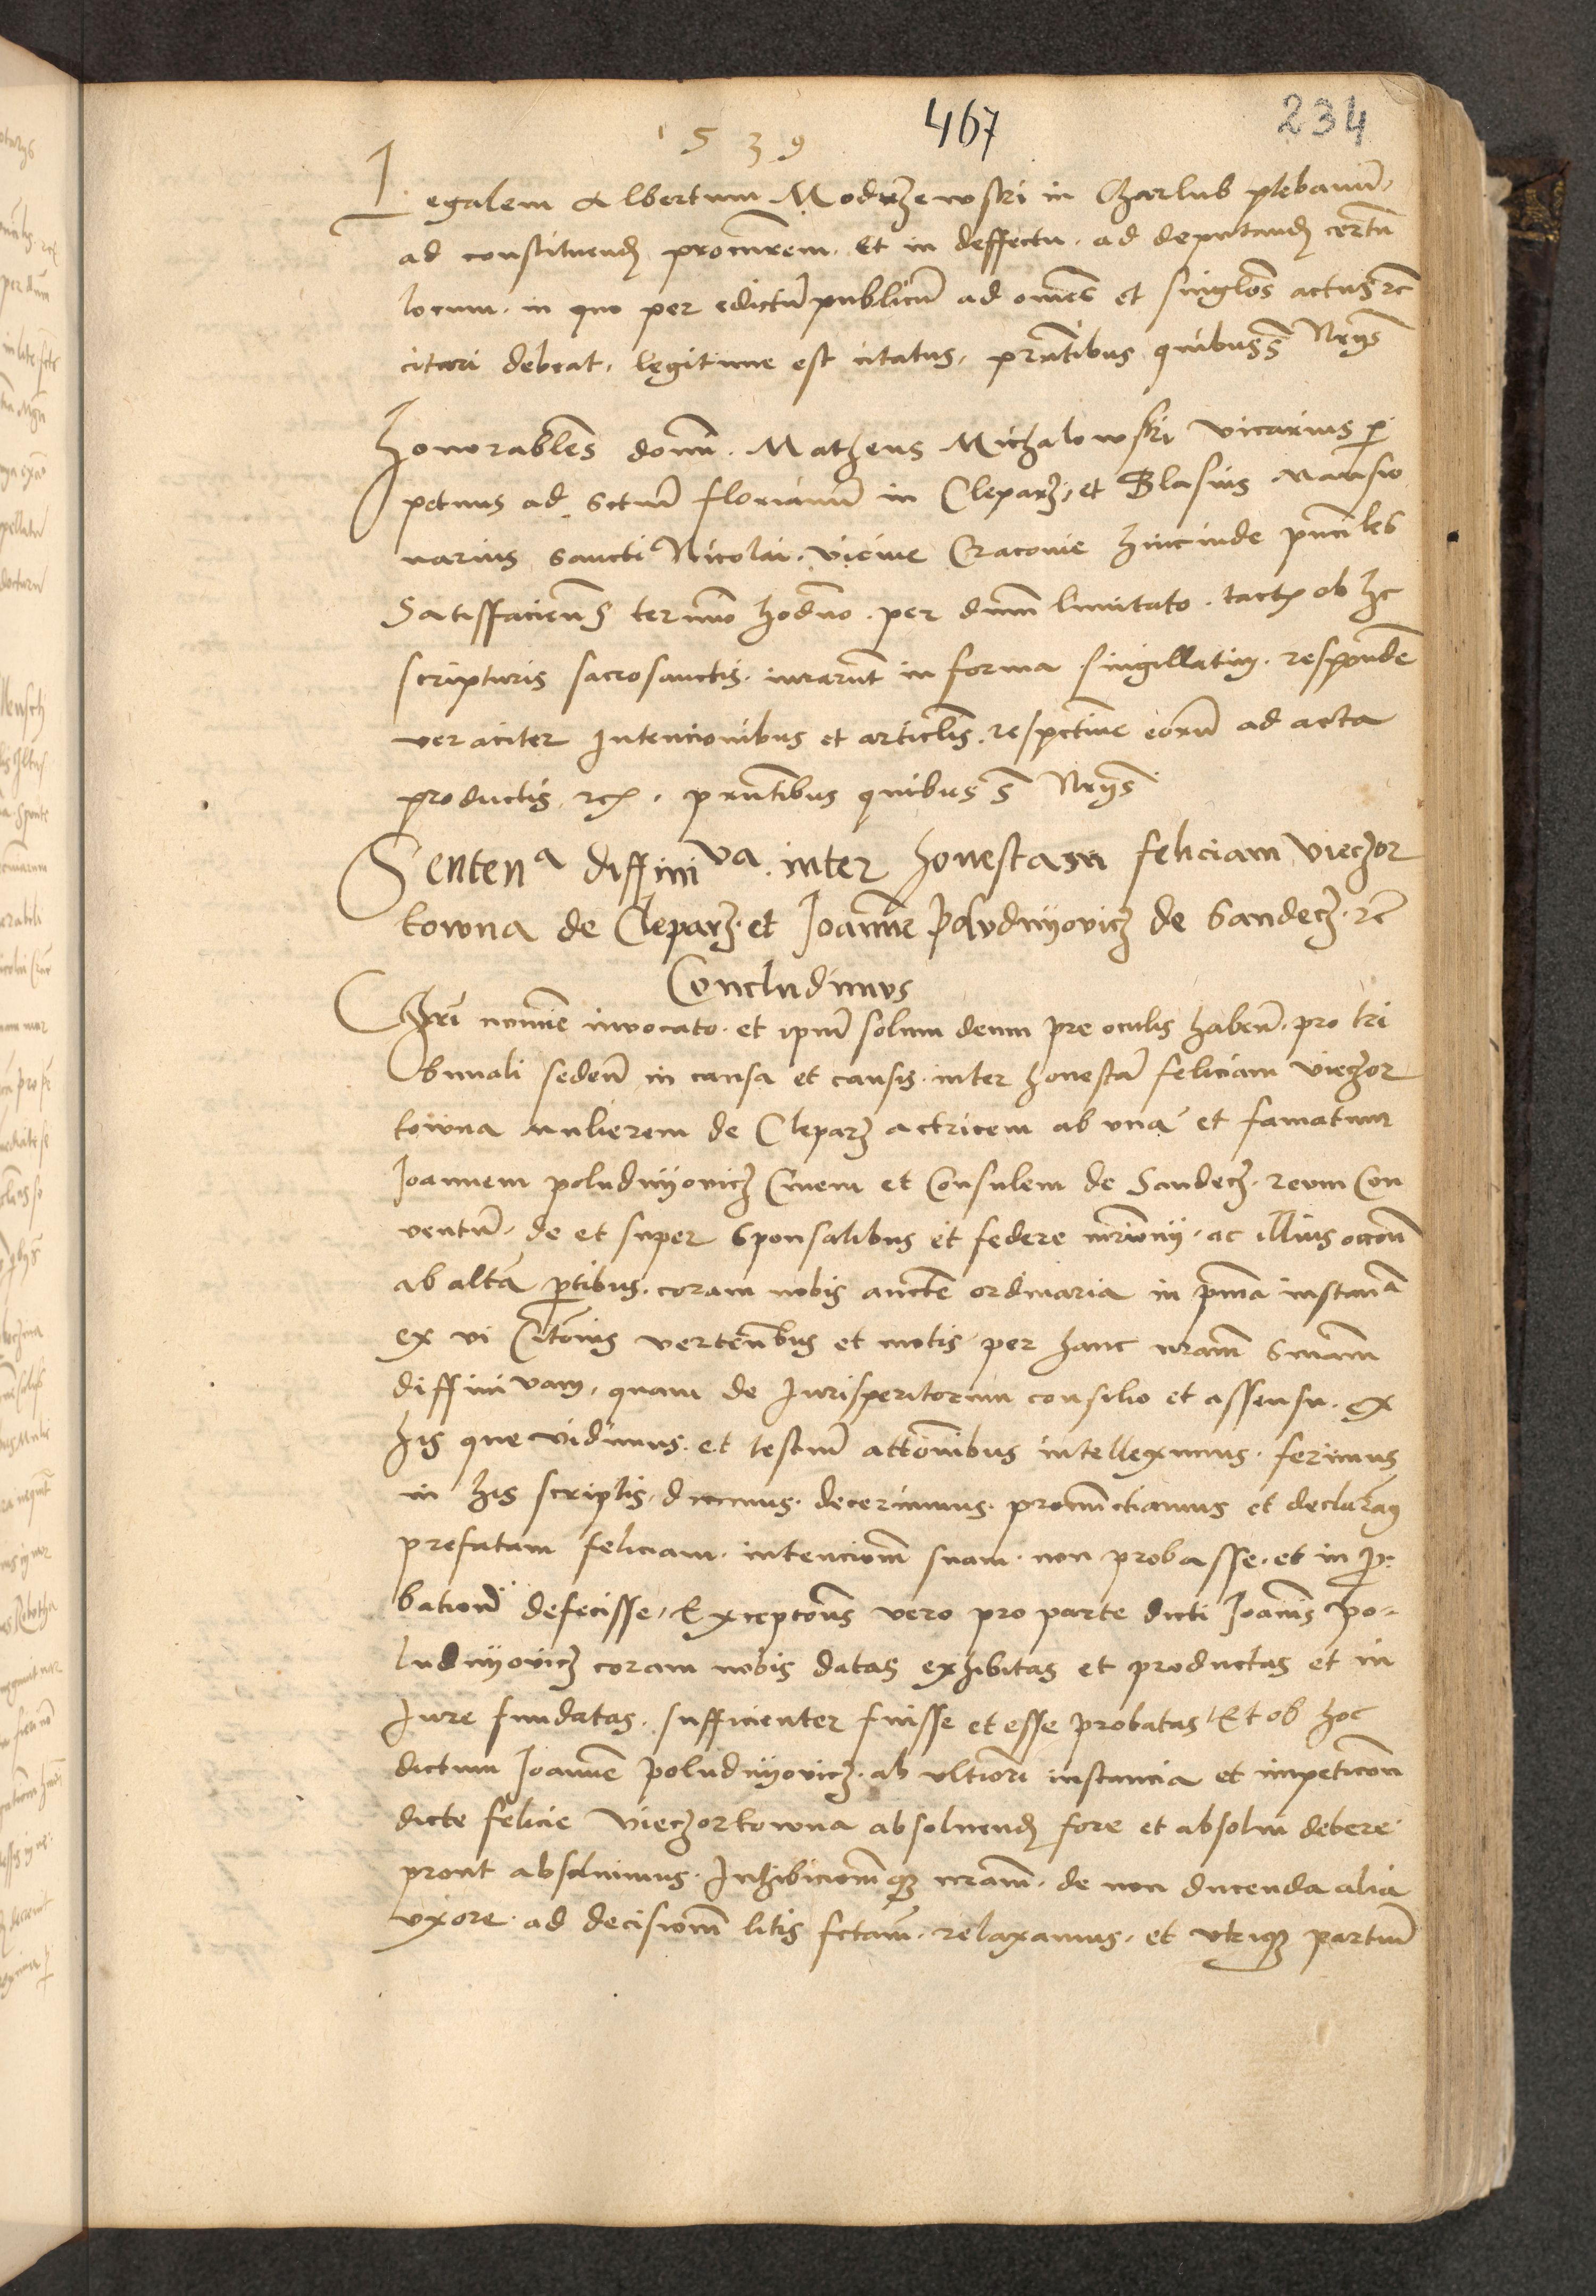 1539 467 234
Legalem Albertum Modrzewski in Charlub plebanũ,
ad constituend procurem. Et in deffectu. ad deputand certũ
locum. in quo per edictũ publicũ ad om̃es et singlos actus rc̃
citari debeat, legitime est citatus, prñtibus quibus s̃ Nrijs
Honorables domĩ. Matheus Michalowski vicarius p̱
petuus ad sctum̃ florianũ in Cleparz, et Blasius mansio
narius sancti Nicolai. vicine Cracovie hincinde pn̄ciles
Satisffacieñs termĩo hodño. per dnm̃ limitato. tactꝭ ob hc
scripturis sacrosanctis. iurarũt in forma singillatim. responde
veraciter Intencionibus et articlis. respctive eorũ ad acta
productis rcꝭ. prñtibus quibus s̃ Nrijs
Sentenᵃ diffiniᵛᵃ. inter honestam feliciam Viechor
kowna de Cleparz. et Joannẽ Poludnyovicz de Sandecz. rc̃
Concludimus
Chrĩ nomĩe invocato. et ipm̃ solum deum pre oculis habeñ. pro tri
bunali sedeñ in causa et causis. inter honestã feliciam viechor
kowna mulierem de Cleparz actricem ab una et famatum
Joannem poludnyovicz Civem et Consulem de Sandecz. reum Con
ventũ. de et super Sponsalibus et federe mr̃imonij. ac illius occom̃
ab altã ptibus. coram nobis aucte ordinaria in pm̃a instanᵃ
ex vi Citõnis verteñbus et motis per hanc nram̃ Smam̃
diffinivam, quam de Jurisperitorum consilio et assensu. ex
his que vidimus. et testiũ attõnibus intelleximus. ferimus
in his scriptis. dicimus. decernimus. pronũctiamus et declaram9
prefatam feliciam. intenciom̃ suam. non probasse. et in p̱
bationẽ defecisse, Exceptõns vero pro parte dicti Joannis Po-
ludnyovicz coram nobis datas exhibitas et productas et in
Jure fundatas. sufficienter fuisse et esse probatas Et ob hoc
dictum Joannẽ Poludnyovicz. ab ultiori instancia et impeticom̃
dicte felicie Viechorkowna absolvend fore et absolvi debere
prout absolvimus. Inhibiciom̃qꝫ nram̃. de non ducenda alia
uxore. ad decisiom̃ litis fctam̃. relaxamus. et utriqꝫ partiũ